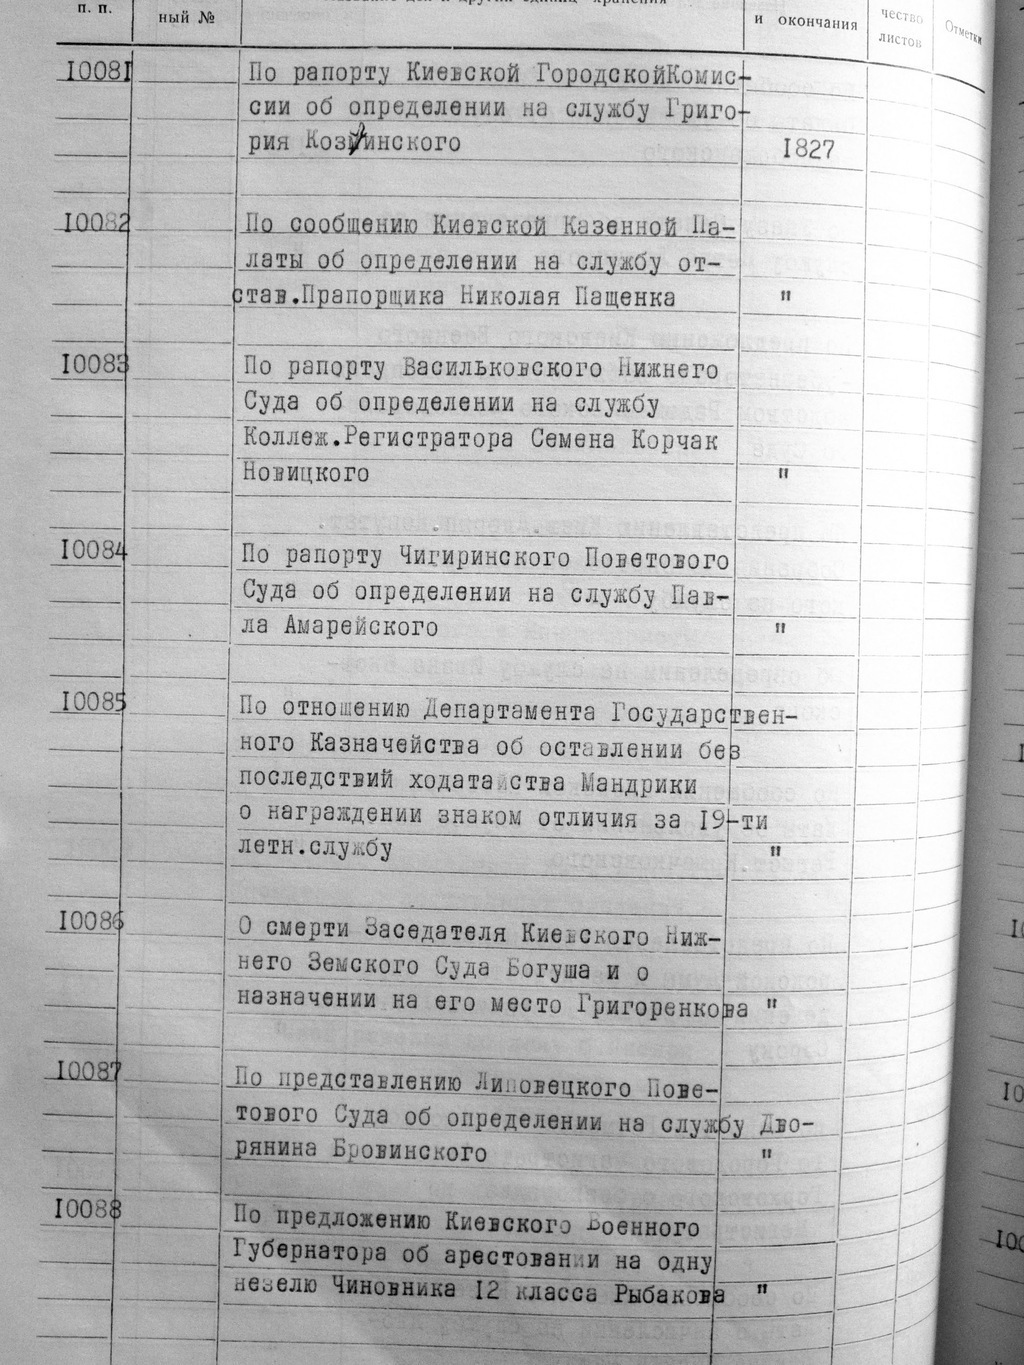 п. п.
ный №
и окончания
чество
листов
Отметки
10081
По рапорту Киевской ГородскойКомис-
сии об определении на службу Григо-
рия Козминского
1827
10082
По сообщению Киевской Казенной Па-
латы об определении на службу от-
став.Прапорщика Николая Пащенка "
10083
По рапорту Васильковского Нижнего
Суда об определении на службу
Коллеж.Регистратора Семена Корчак
Новицкого "
10084
По рапорту Чигиринского Поветового
Суда об определении на службу Пав-
ла Амарейского "
10085
По отношению Департамента Государствен-
ного Казначейства об оставлении без
последствий ходатайства Мандрики
о награждении знаком отличия за 19-ти
летн.службу "
10086
О смерти Заседателя Киевского Ниж-
него Земского Суда Богуша и о
назначении на его место Григоренкова "
10087
По представлению Липовецкого Пове-
тового Суда об определении на службу Дво-
рянина Бровинского "
10088
По предложению Киевского Военного
Губернатора об арестовании на одну
незелю Чиновника 12 класса Рыбакова "